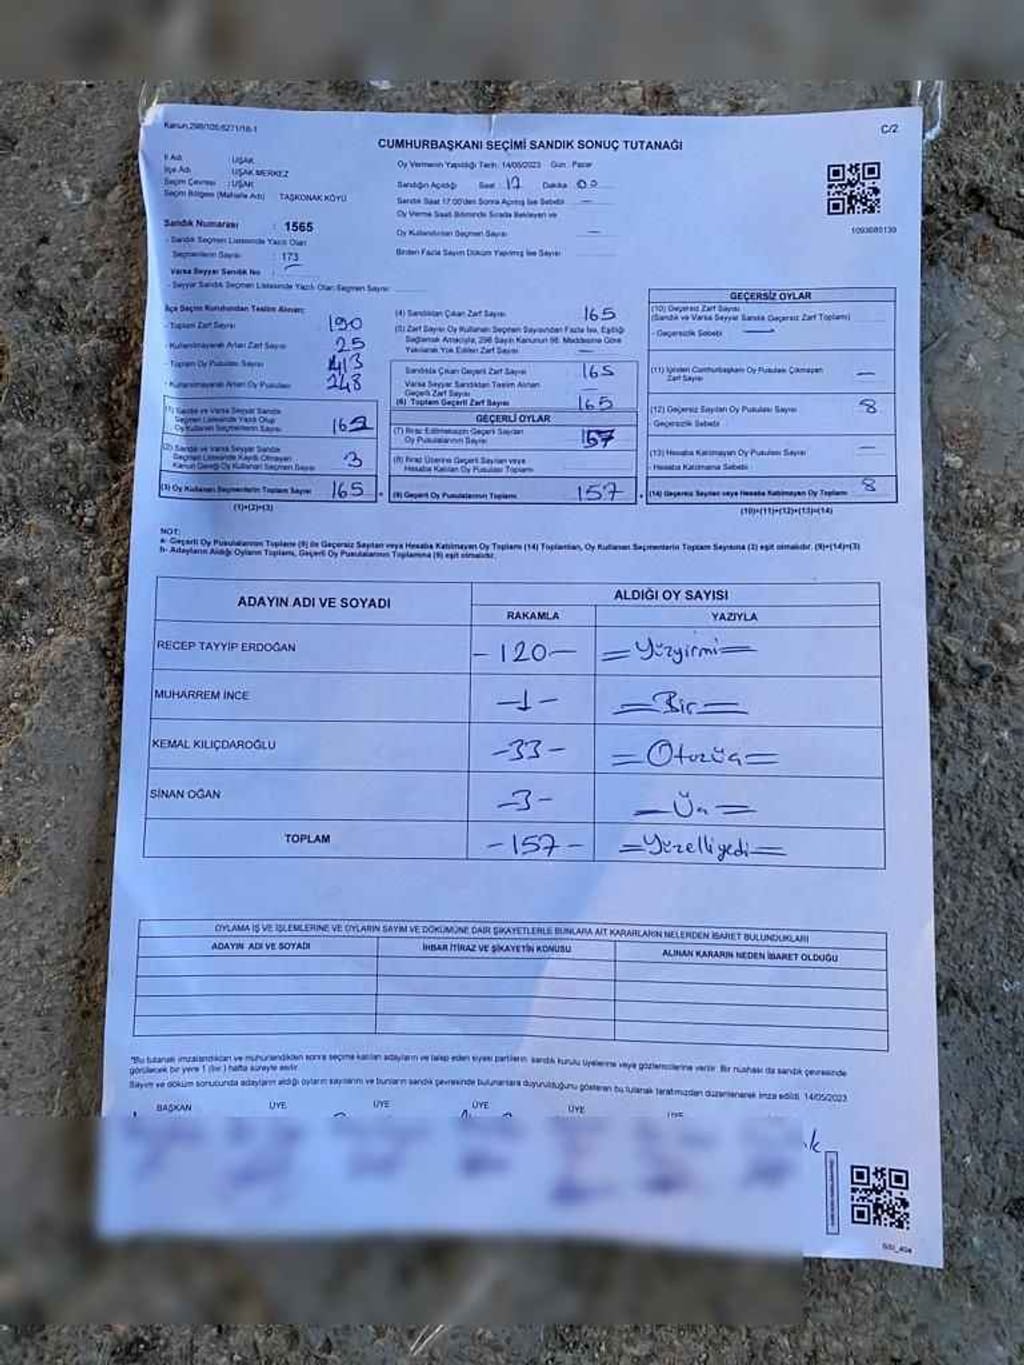 Kanun.298/105;6271/18-1
C/2
CUMHURBAŞKANI SEÇİMİ SANDIK SONUÇ TUTANAĞI
İl Adı : UŞAK
İlçe Adı : UŞAK MERKEZ
Seçim Çevresi : UŞAK
Seçim Bölgesi (Mahalle Adı) : TAŞKONAK KÖYÜ
Sandık Numarası : 1565
- Sandık Seçmen Listesinde Yazılı Olan
Seçmenlerin Sayısı : 173
Varsa Seyyar Sandık No :
- Seyyar Sandık Seçmen Listesinde Yazılı Olan Seçmen Sayısı :
Oy Vermenin Yapıldığı Tarih: 14/05/2023 Gün : Pazar
Sandığın Açıldığı Saat : 17 Dakika : 00
Sandık Saat 17:00'den Sonra Açılmış İse Sebebi : —
Oy Verme Saati Bitiminde Sırada Bekleyen ve
Oy Kullandırılan Seçmen Sayısı : —
Birden Fazla Sayım Döküm Yapılmış İse Sayısı :
1093680139
İlçe Seçim Kurulundan Teslim Alınan;
- Toplam Zarf Sayısı : 190
- Kullanılmayarak Artan Zarf Sayısı : 25
- Toplam Oy Pusulası Sayısı : 413
- Kullanılmayarak Artan Oy Pusulası : 248
(1) Sandık ve Varsa Seyyar Sandık
Seçmen Listesinde Yazılı Olup
Oy Kullanan Seçmenlerin Sayısı : 162
(2) Sandık ve Varsa Seyyar Sandık
Seçmen Listesinde Kayıtlı Olmayan
Kanun Gereği Oy Kullanan Seçmen Sayısı : 3
(3) Oy Kullanan Seçmenlerin Toplam Sayısı : 165
(1)+(2)=(3)
(4) Sandıktan Çıkan Zarf Sayısı : 165
(5) Zarf Sayısı Oy Kullanan Seçmen Sayısından Fazla İse, Eşitliği
Sağlamak Amacıyla, 298 Sayılı Kanunun 98. Maddesine Göre
Yakılarak Yok Edilen Zarf Sayısı : —
Sandıkta Çıkan Geçerli Zarf Sayısı : 165
Varsa Seyyar Sandıktan Teslim Alınan
Geçerli Zarf Sayısı : —
(6) Toplam Geçerli Zarf Sayısı : 165
GEÇERLİ OYLAR
(7) İtiraz Edilmeksizin Geçerli Sayılan
Oy Pusulalarının Sayısı : 157
(8) İtiraz Üzerine Geçerli Sayılan veya
Hesaba Katılan Oy Pusulası Toplamı :
(9) Geçerli Oy Pusulalarının Toplamı : 157
GEÇERSİZ OYLAR
(10) Geçersiz Zarf Sayısı
(Sandık ve Varsa Seyyar Sandık Geçersiz Zarf Toplamı)
- Geçersizlik Sebebi : —
(11) İçinden Cumhurbaşkanı Oy Pusulası Çıkmayan
Zarf Sayısı : —
(12) Geçersiz Sayılan Oy Pusulası Sayısı : 8
Geçersizlik Sebebi :
(13) Hesaba Katılmayan Oy Pusulası Sayısı : —
Hesaba Katılmama Sebebi :
(14) Geçersiz Sayılan veya Hesaba Katılmayan Oy Toplamı : 8
(10)+(11)+(12)+(13)=(14)
NOT:
a- Geçerli Oy Pusulalarının Toplamı (9) ile Geçersiz Sayılan veya Hesaba Katılmayan Oy Toplamı (14) Toplamları, Oy Kullanan Seçmenlerin Toplam Sayısına (3) eşit olmalıdır. (9)+(14)=(3)
b- Adayların Aldığı Oyların Toplamı, Geçerli Oy Pusulalarının Toplamına (9) eşit olmalıdır.
ADAYIN ADI VE SOYADI
ALDIĞI OY SAYISI
RAKAMLA YAZIYLA
RECEP TAYYİP ERDOĞAN -120- =Yüzyirmi=
MUHARREM İNCE -1- =Bir=
KEMAL KILIÇDAROĞLU -33- =Otuzüç=
SİNAN OĞAN -3- =Üç=
TOPLAM -157- =Yüzelliyedi=
OYLAMA İŞ VE İŞLEMLERİNE VE OYLARIN SAYIM VE DÖKÜMÜNE DAİR ŞİKAYETLERLE BUNLARA AİT KARARLARIN NELERDEN İBARET BULUNDUKLARI
ADAYIN ADI VE SOYADI İHBAR İTİRAZ VE ŞİKAYETİN KONUSU ALINAN KARARIN NEDEN İBARET OLDUĞU
*Bu tutanak imzalandıktan ve mühürlendikten sonra seçime katılan adayların ve talep eden siyasi partilerin sandık kurulu üyelerine veya gözlemcilerine verilir. Bir nüshası da sandık çevresinde
görülecek bir yere 1 (bir) hafta süreyle asılır.
Sayım ve döküm sonucunda adayların aldığı oyların sayılarını ve bunların sandık çevresinde bulunanlara duyurulduğunu gösteren bu tutanak tarafımızdan düzenlenerek imza edildi. 14/05/2023
BAŞKAN ÜYE ÜYE ÜYE ÜYE ÜYE